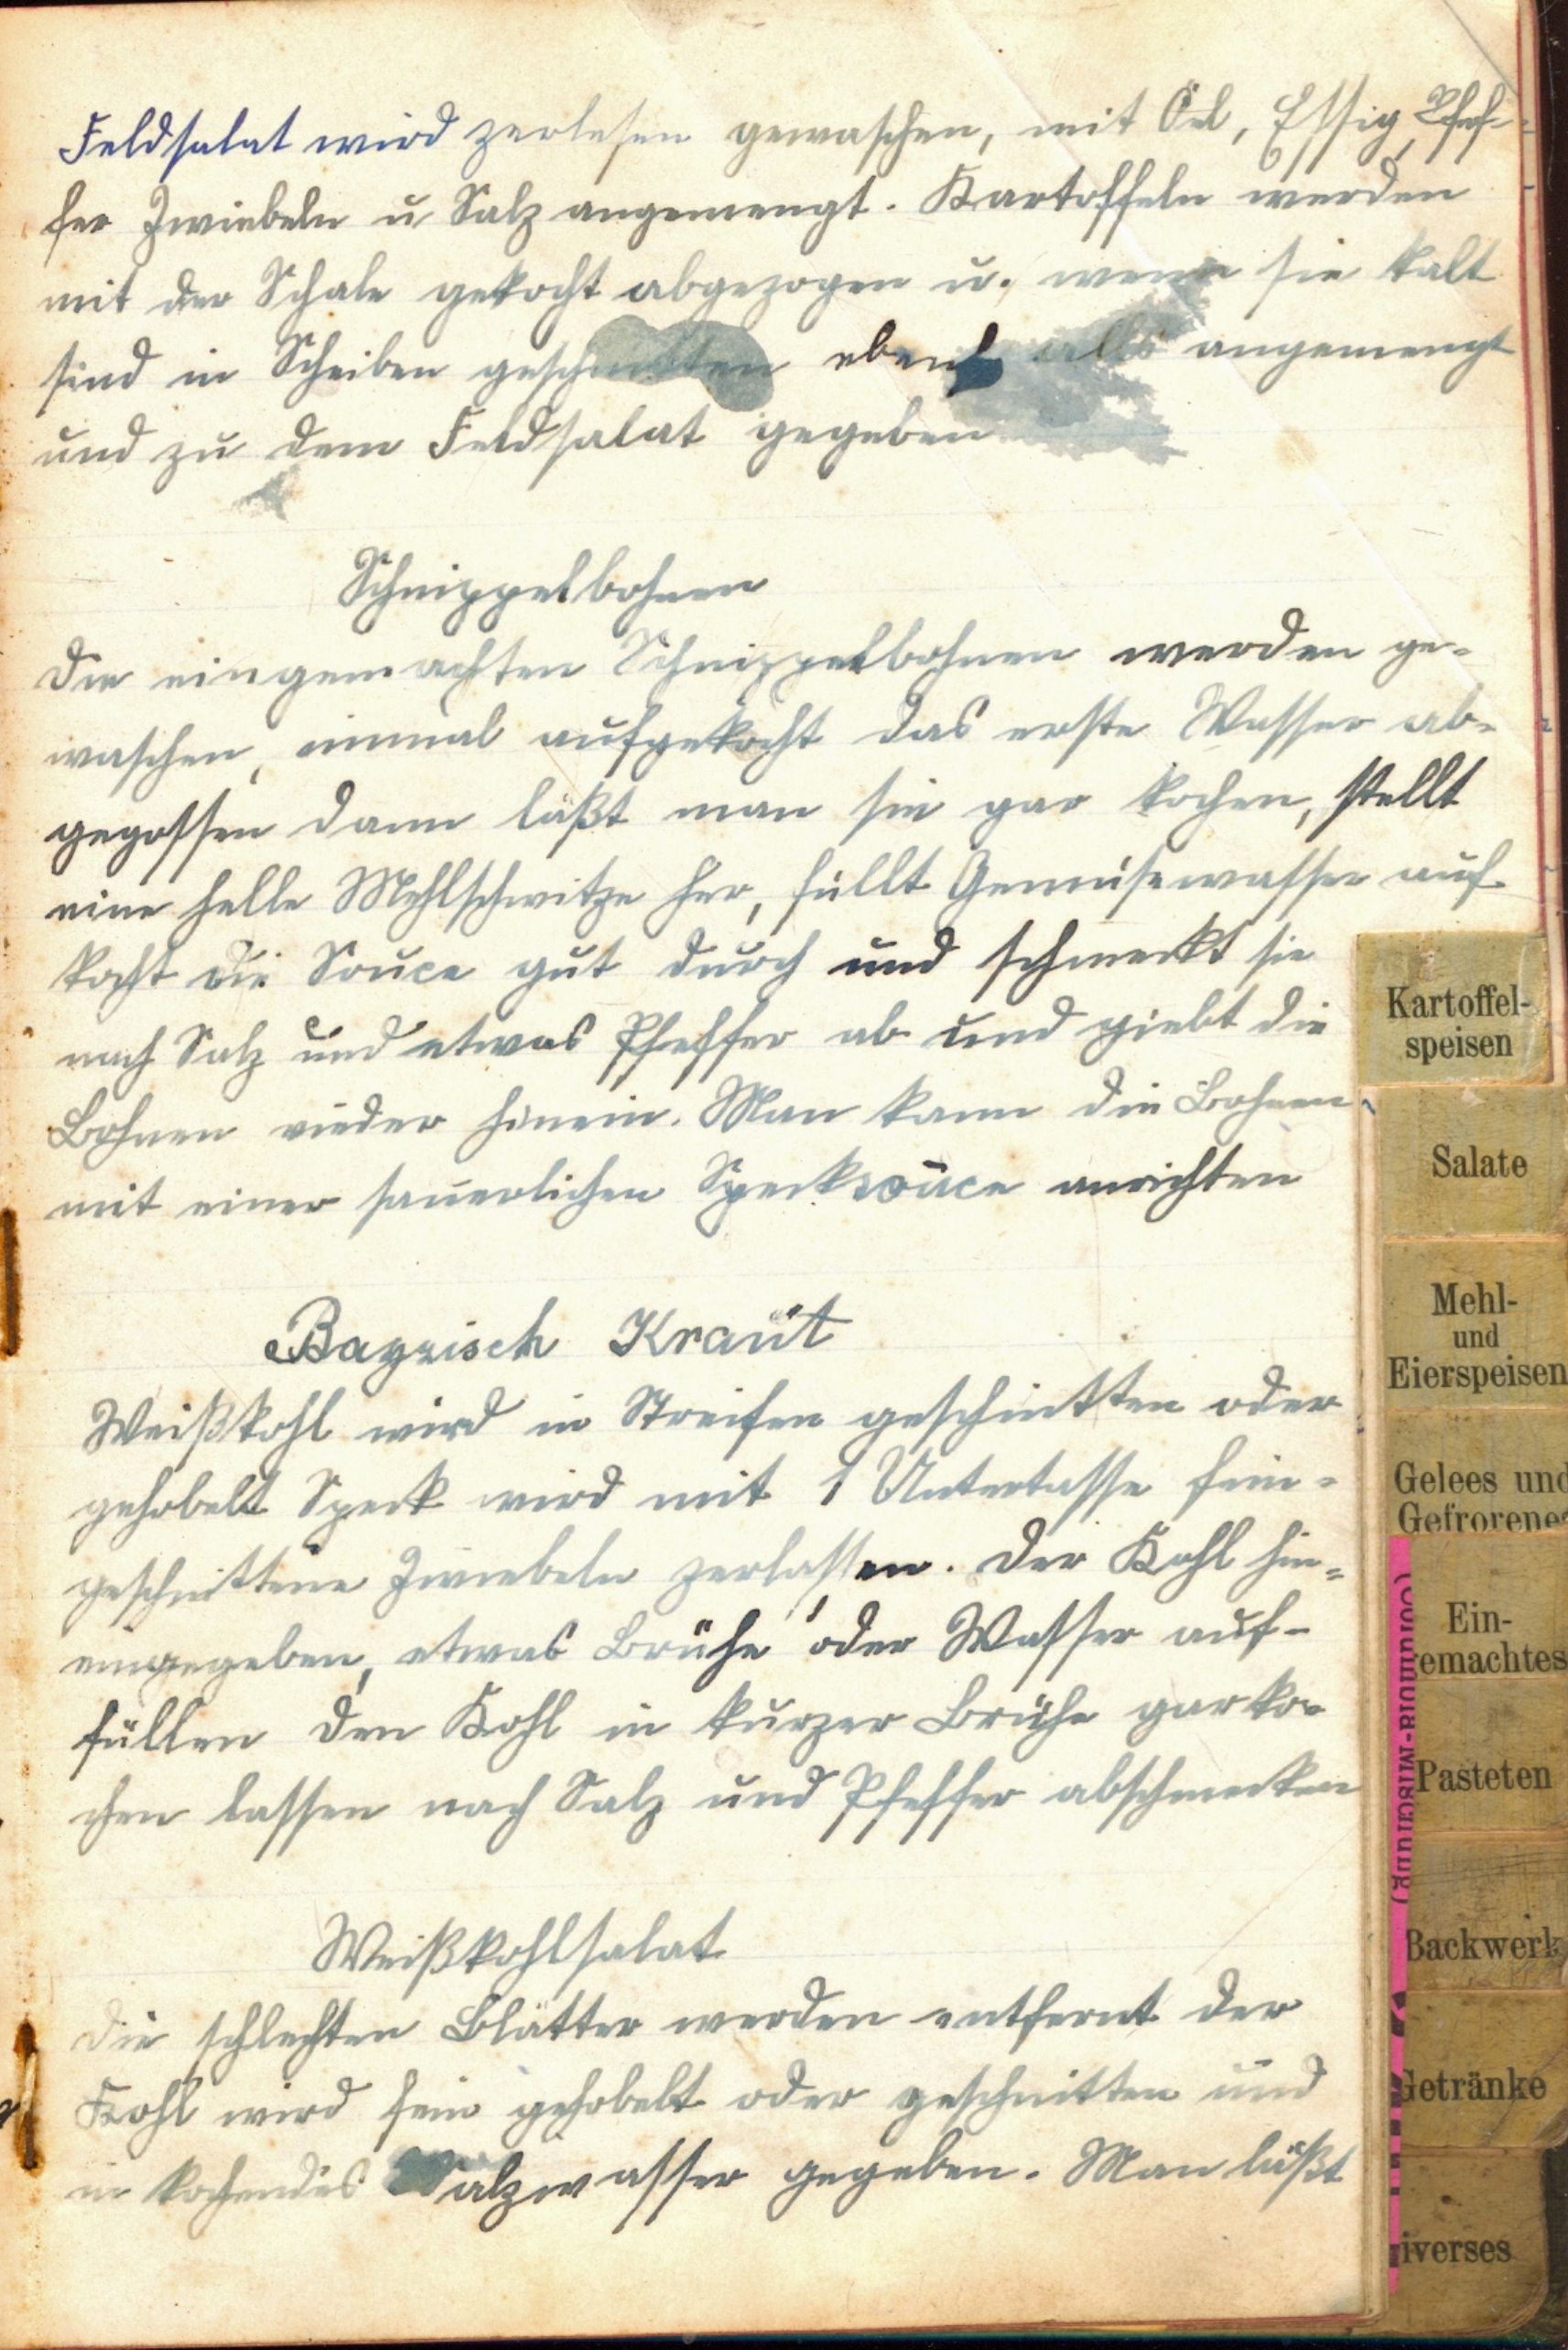 Feldsalat wird zerlesen gewaschen, mit Öel, Essig, Pfef-
fer Zwiebeln u Salz angemengt. Kartoffeln werden
mit der Schale gekocht abgezogen u. wenn sie kalt
sind in Scheiben geschnitten ebenfalls angemengt
und zu dem Feldsalat gegeben
Schnippelbohnen
Die eingemachten Schnippelbohnen werden ge-
waschen, einmal aufgekocht das erste Wasser ab-
gegossen dann läßt man sie gar kochen, stellt
eine helle Mehlschwitze her, füllt Gemüsewasser auf
kocht die Souce gut durch und schmeckt sie
nach Salz und etwas Pfeffer ab und giebt die
Bohnen wieder hinein. Man kann die Bohnen
mit einer säuerlichen Specksouce anrichten
Bayrisch Kraut
Weißkohl wird in Streifen geschnitten oder
gehobelt Speck wird mit 1 Untertasse fein-
geschnittene Zwiebeln zerlassen. Der Kohl hin-
eingegeben, etwas Brühe oder Wasser auf-
füllen den Kohl in kurzer Brühe gar ko-
chen lassen nach Salz und Pfeffer abschmecken
Weißkohlsalat
Die schlechten Blätter werden entfernt der
Kohl wird fein gehobelt oder geschnitten und
in kochendes Salzwasser gegeben. Man läßt
Kartoffel-
speisen
Salate
Mehl-
und
Eierspeisen
Gelees und
Gefrorenes
Ein-
gemachtes
Pasteten
Backwerk
Getränke
iverses